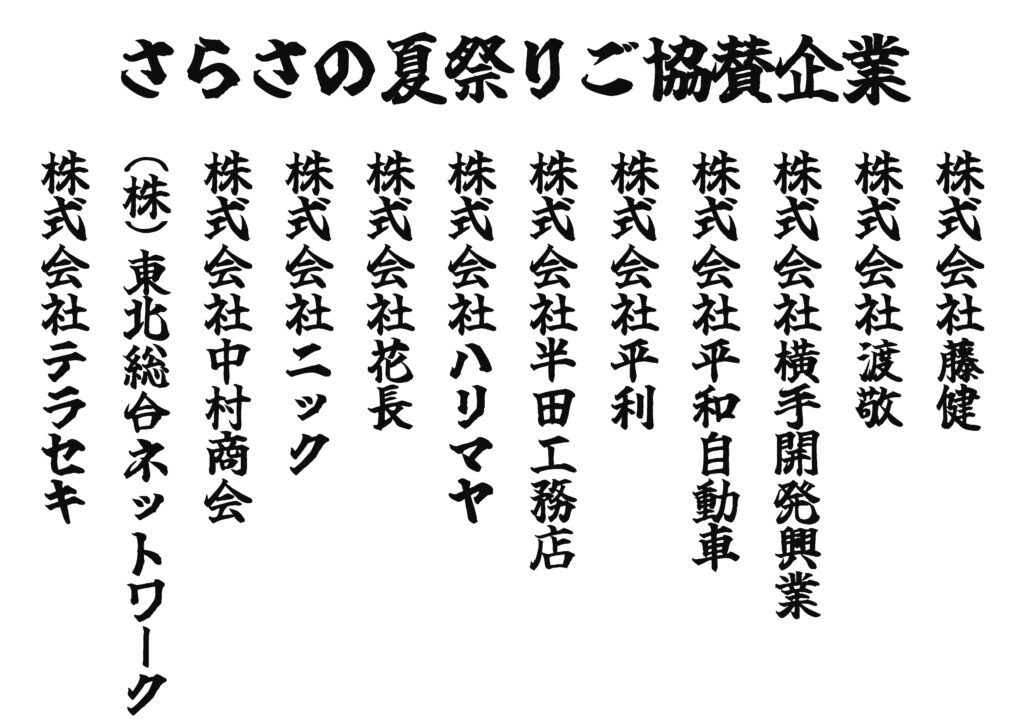 さらさの夏祭りご協賛企業
株式会社藤健
株式会社渡敬
株式会社横手開発興業
株式会社平和自動車
株式会社平利
株式会社半田工務店
株式会社ハリマヤ
株式会社花長
株式会社ニック
株式会社中村商会
（株）東北総合ネットワーク
株式会社テラセキ